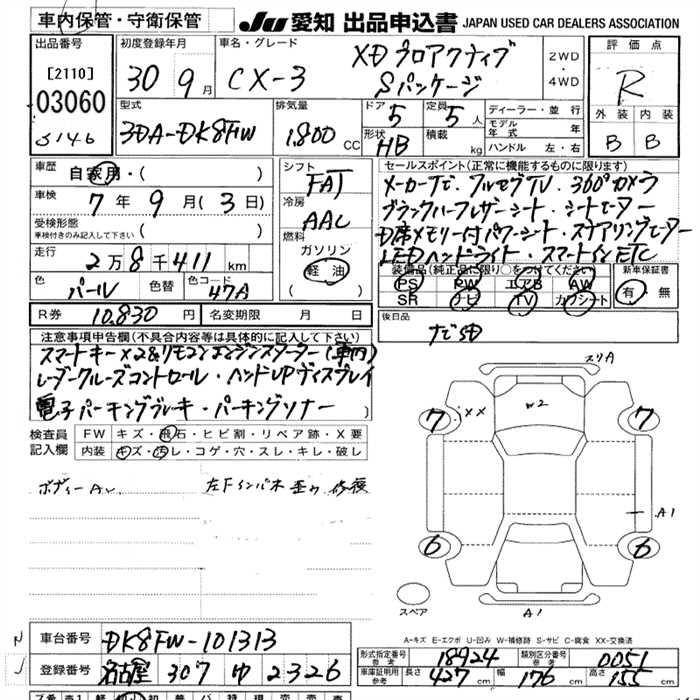 車内保管・守衛保管
JU 愛知 出品申込書 JAPAN USED CAR DEALERS ASSOCIATION
出品番号
[2110]
03060
5146
初度登録年月
30 9月
車名・グレード
CX-3
XD プロアクティブ
Sパッケージ
2WD
4WD
評価点
R
外装 内装
B B
型式
3DA-DK8FW
排気量
1,800 CC
ドア 5
形状 HB
定員 5人
積載 kg
ディーラー・並行
モデル年式 年
ハンドル 左・右
車歴 自家用・( )
車検 7年 9月(3日)
受検形態
車検付きのみ記入して下さい ( )
走行 2万8千411km
色 パール 色替 色コード 47A
R券 10,830円 名変期限 月
シフト
FAT
冷房
AAC
燃料
ガソリン
軽油
( )
セールスポイント(正常に機能するものに限ります)
メーカーナビ・フルセグTV・360°カメラ
ブラックハーフレザーシート・シートヒーター
D席メモリー付パワーシート・ステアリングヒーター
LEDヘッドライト・スマートインETC
装備品(純正品に限り○をつけてください)
PS PW エアB AW
SR ナビ TV カワシート
新車保証書
有 無
後日品
ナビSD
注意事項申告欄(不具合内容等は具体的に記入して下さい)
スマートキー×2&リモコンエンジンスターター(車内)
レーダークルーズコントロール・ヘッドUPディスプレイ
電子パーキングブレーキ・パーキングソナー )
検査員記入欄
FW キズ・飛石・ヒビ割・リペア跡・X要
内装 キズ・汚れ・コゲ・穴・スレ・キレ・破レ
左Fインパネ 歪み 修復
スリA
XX
W2
7 7
6 6
A1
A1
スペア
A-キズ E-エクボ U-凹み W-補修跡 S-サビ C-腐食 XX-交換済
車台番号 DK8FW-101313
登録番号 名古屋 307 ゆ 2326
型式指定番号 参考 18924
類別区分番号 参考 0051
車庫証明用 参考 長さ 427cm 幅 176cm 高さ 155cm